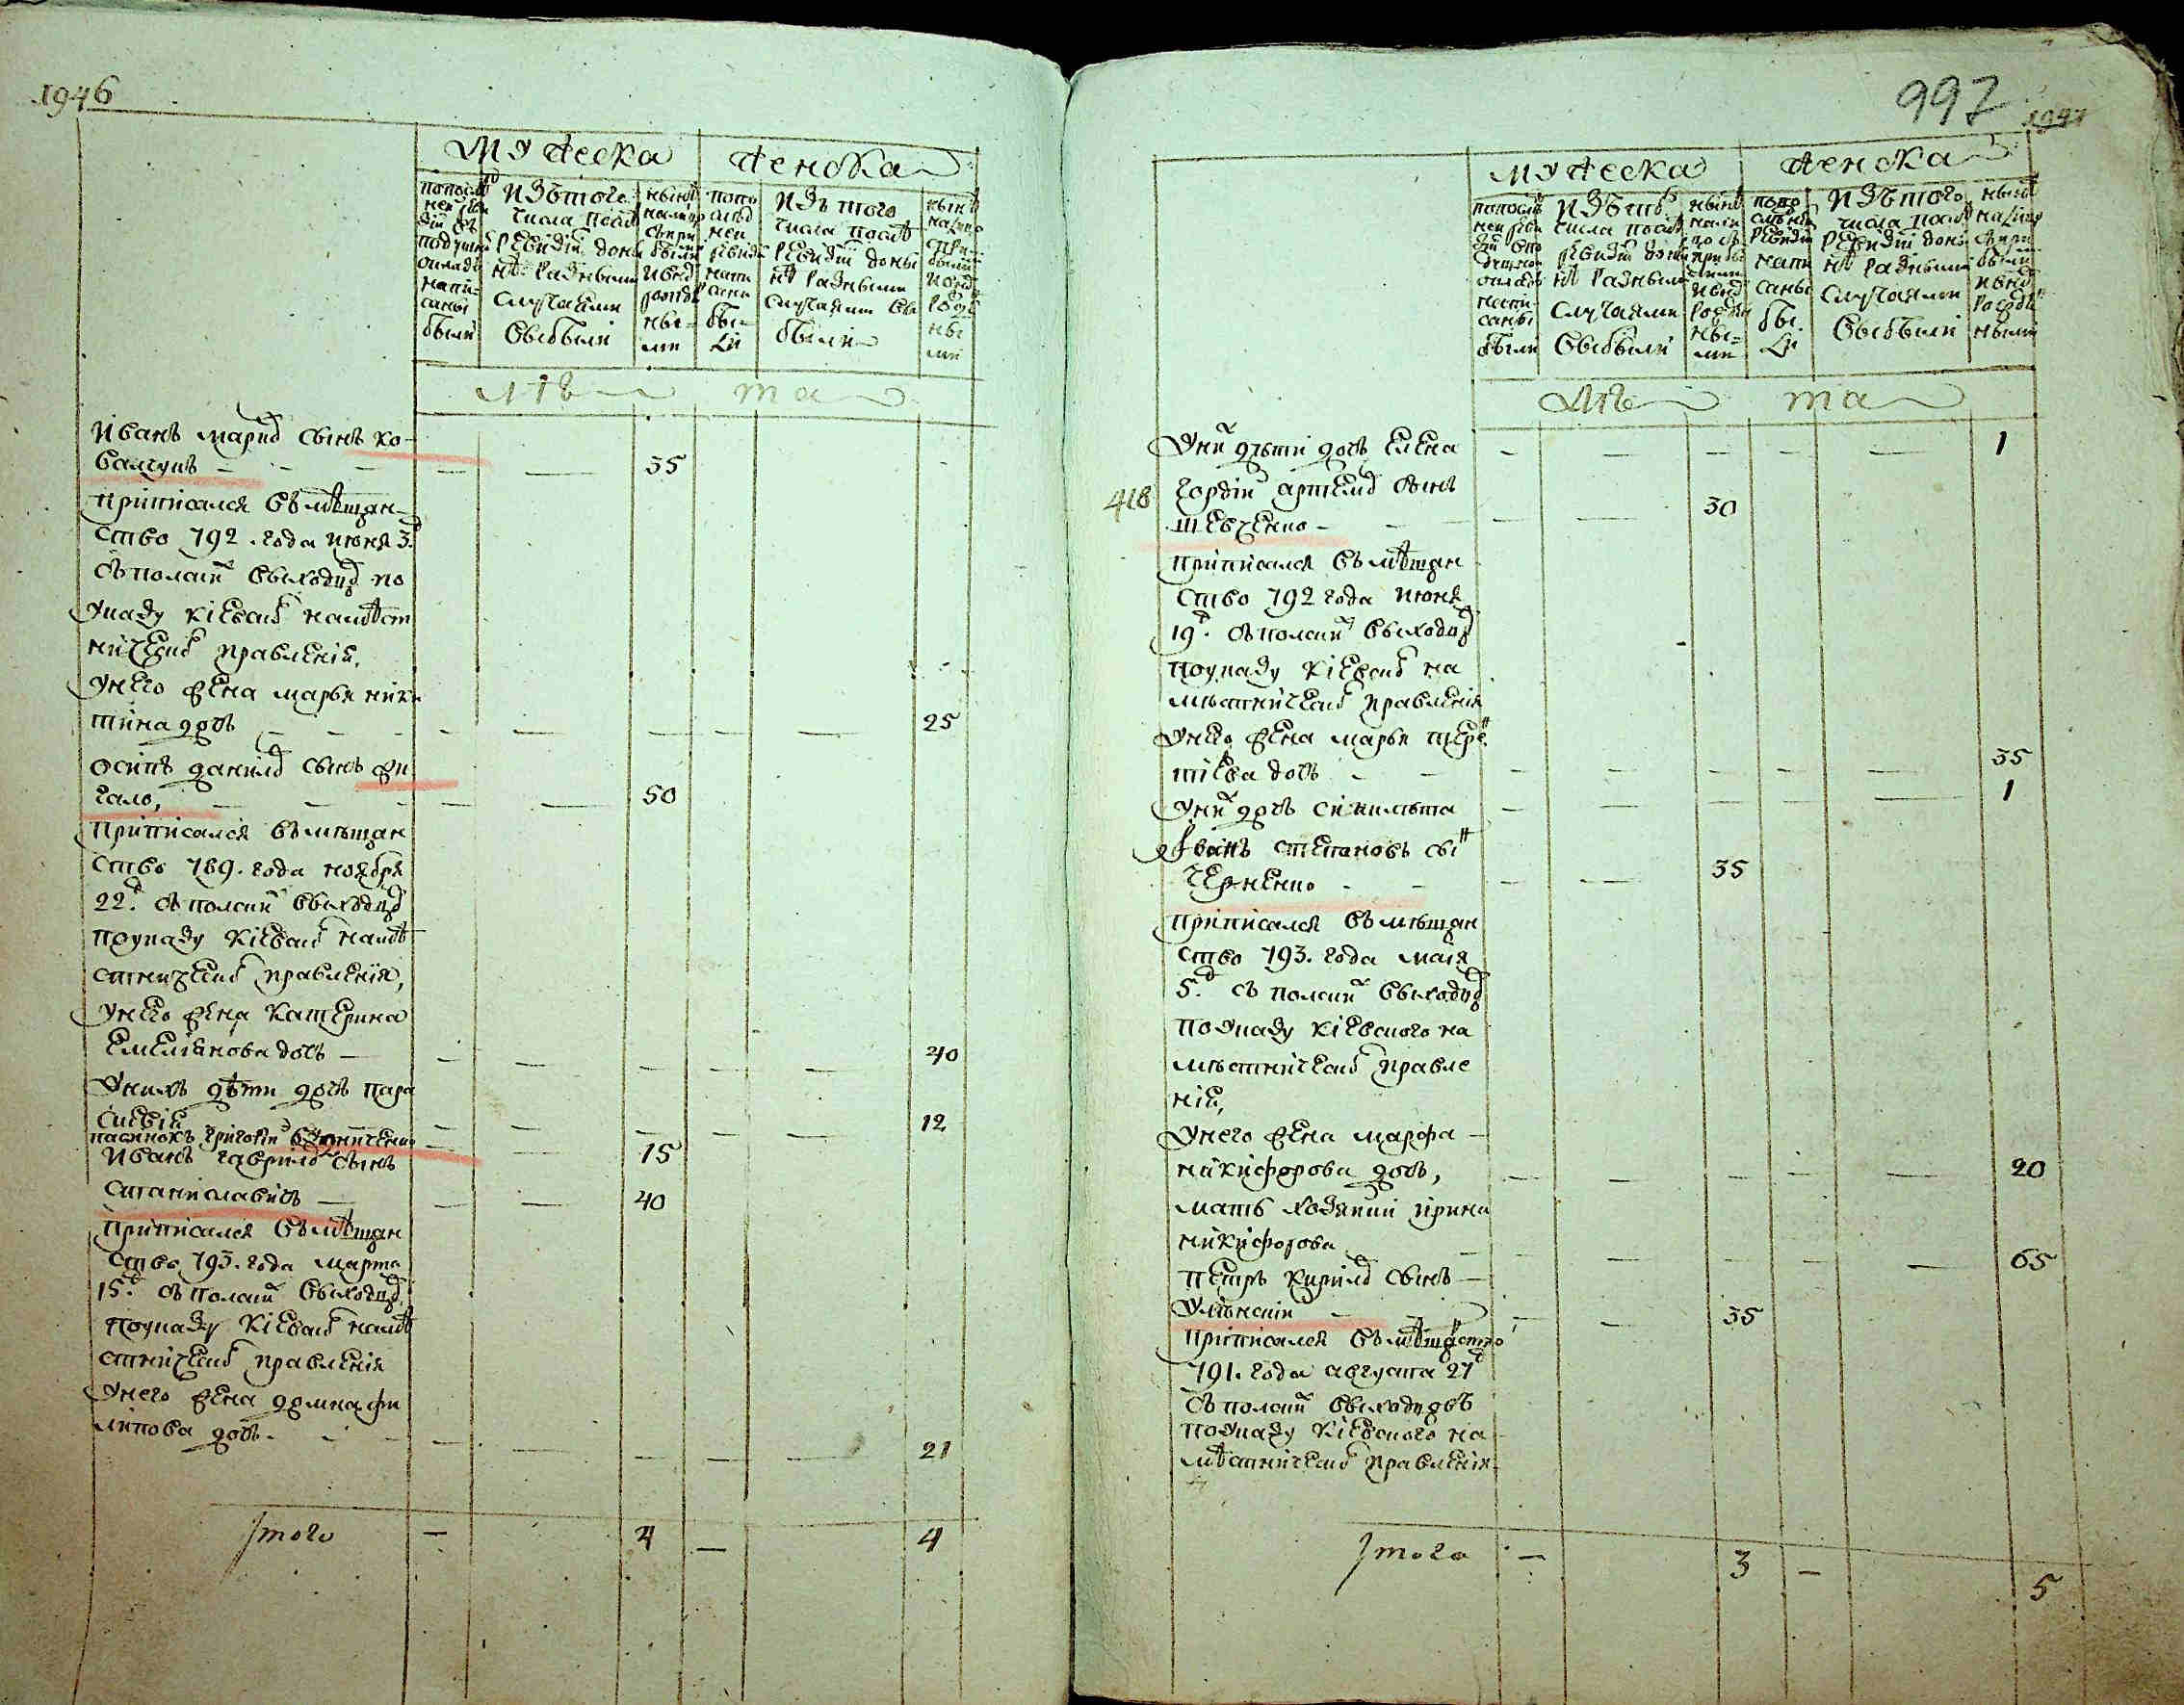 1946
Мужеска
женска
попослѣд
ней реви
зіи въ
подушн
окладѣ
напи-
саны
были
изътого
числа послѣ
ревизіи доны
нѣ разными
случаями
выбыли
нынѣ
налицо
съпри
былы
ивнов
рожде
ны-
ми
попо
слѣд
ней
ревизи
напи
саны
бы-
ли
изъ того
числа послѣ
ревизіи доны
нѣ разными
случаями вы
были
нынѣ
налицо
спри
былы
ивнов
рож
ны
ми
лѣ та
Иванъ марк сынъ ко-
валчукъ — — — 35
приписался вмѣщан-
ство 792. года июня 3.
съполски выходцов по
указу кіевско намѣст
ническ правленія.
унего жена марья ники
тина дочь — — — 25
осипъ данило сынъ жи
гало, — — — 50
приписался вмѣщан
ство 789. года ноября
22. съ полски выходцов
поуказу кіевско намѣ
стническ правленія,
унего жена катерина
емеліянова дочь — 40
унихъ дѣти дочь пара
скевія 12
пасинокъ григорій 15
Иванъ гаврило сынъ
станиславичъ — 40
приписался вмѣщан
ство 793. года марта
15. съ полски выходцов
поуказу кіевско намѣ
стническ правленія
унего жена домна фи
липова дочь — 21
Jтого — 4 — 4
997
1947
Мужеска
женска
попослѣд
ней реви
зіи впо
душном
окладѣ
напи-
саны
были
изътог
числа послѣ
ревизіи доны
нѣ разными
случаями
выбыли
нынѣ
нали
цо съ
прибы
лыми
ивнов
рожде
ны-
ми
попо
слѣдней
ревизіи
напи
саны
бы-
ли
изътого
числа послѣ
ревизіи доны
нѣ разными
случаями
выбыли
нынѣ
налицо
спри
былы
ивнов
рожде
ными
лѣ та
уних дѣти дочь елена 1
418 гордій артемо сынъ
шевченко — 30
приписался вмѣщан
ство 792 года июня
19. съполски выходцов
поуказу кіевско на
мѣстническ правленія
унего жена марья тере
тіева дочь — 35
уних дочь 1
Jванъ степановъ сы
черненко — 35
приписался вмѣщан
ство 793. года маія
5. съ полски выходцов
поуказу кіевского на
мѣстническ правле
нія,
унего жена марфа —
никифорова дочь, 20
мать хозяина ирина
никифорова 65
петръ кирило сынъ —
улянскій — 35
приписался вмѣщанство
791. года августа 27
съполски выходцовъ
поуказу кіевского на
мѣстническ правленія
Jтого — 3 — 5